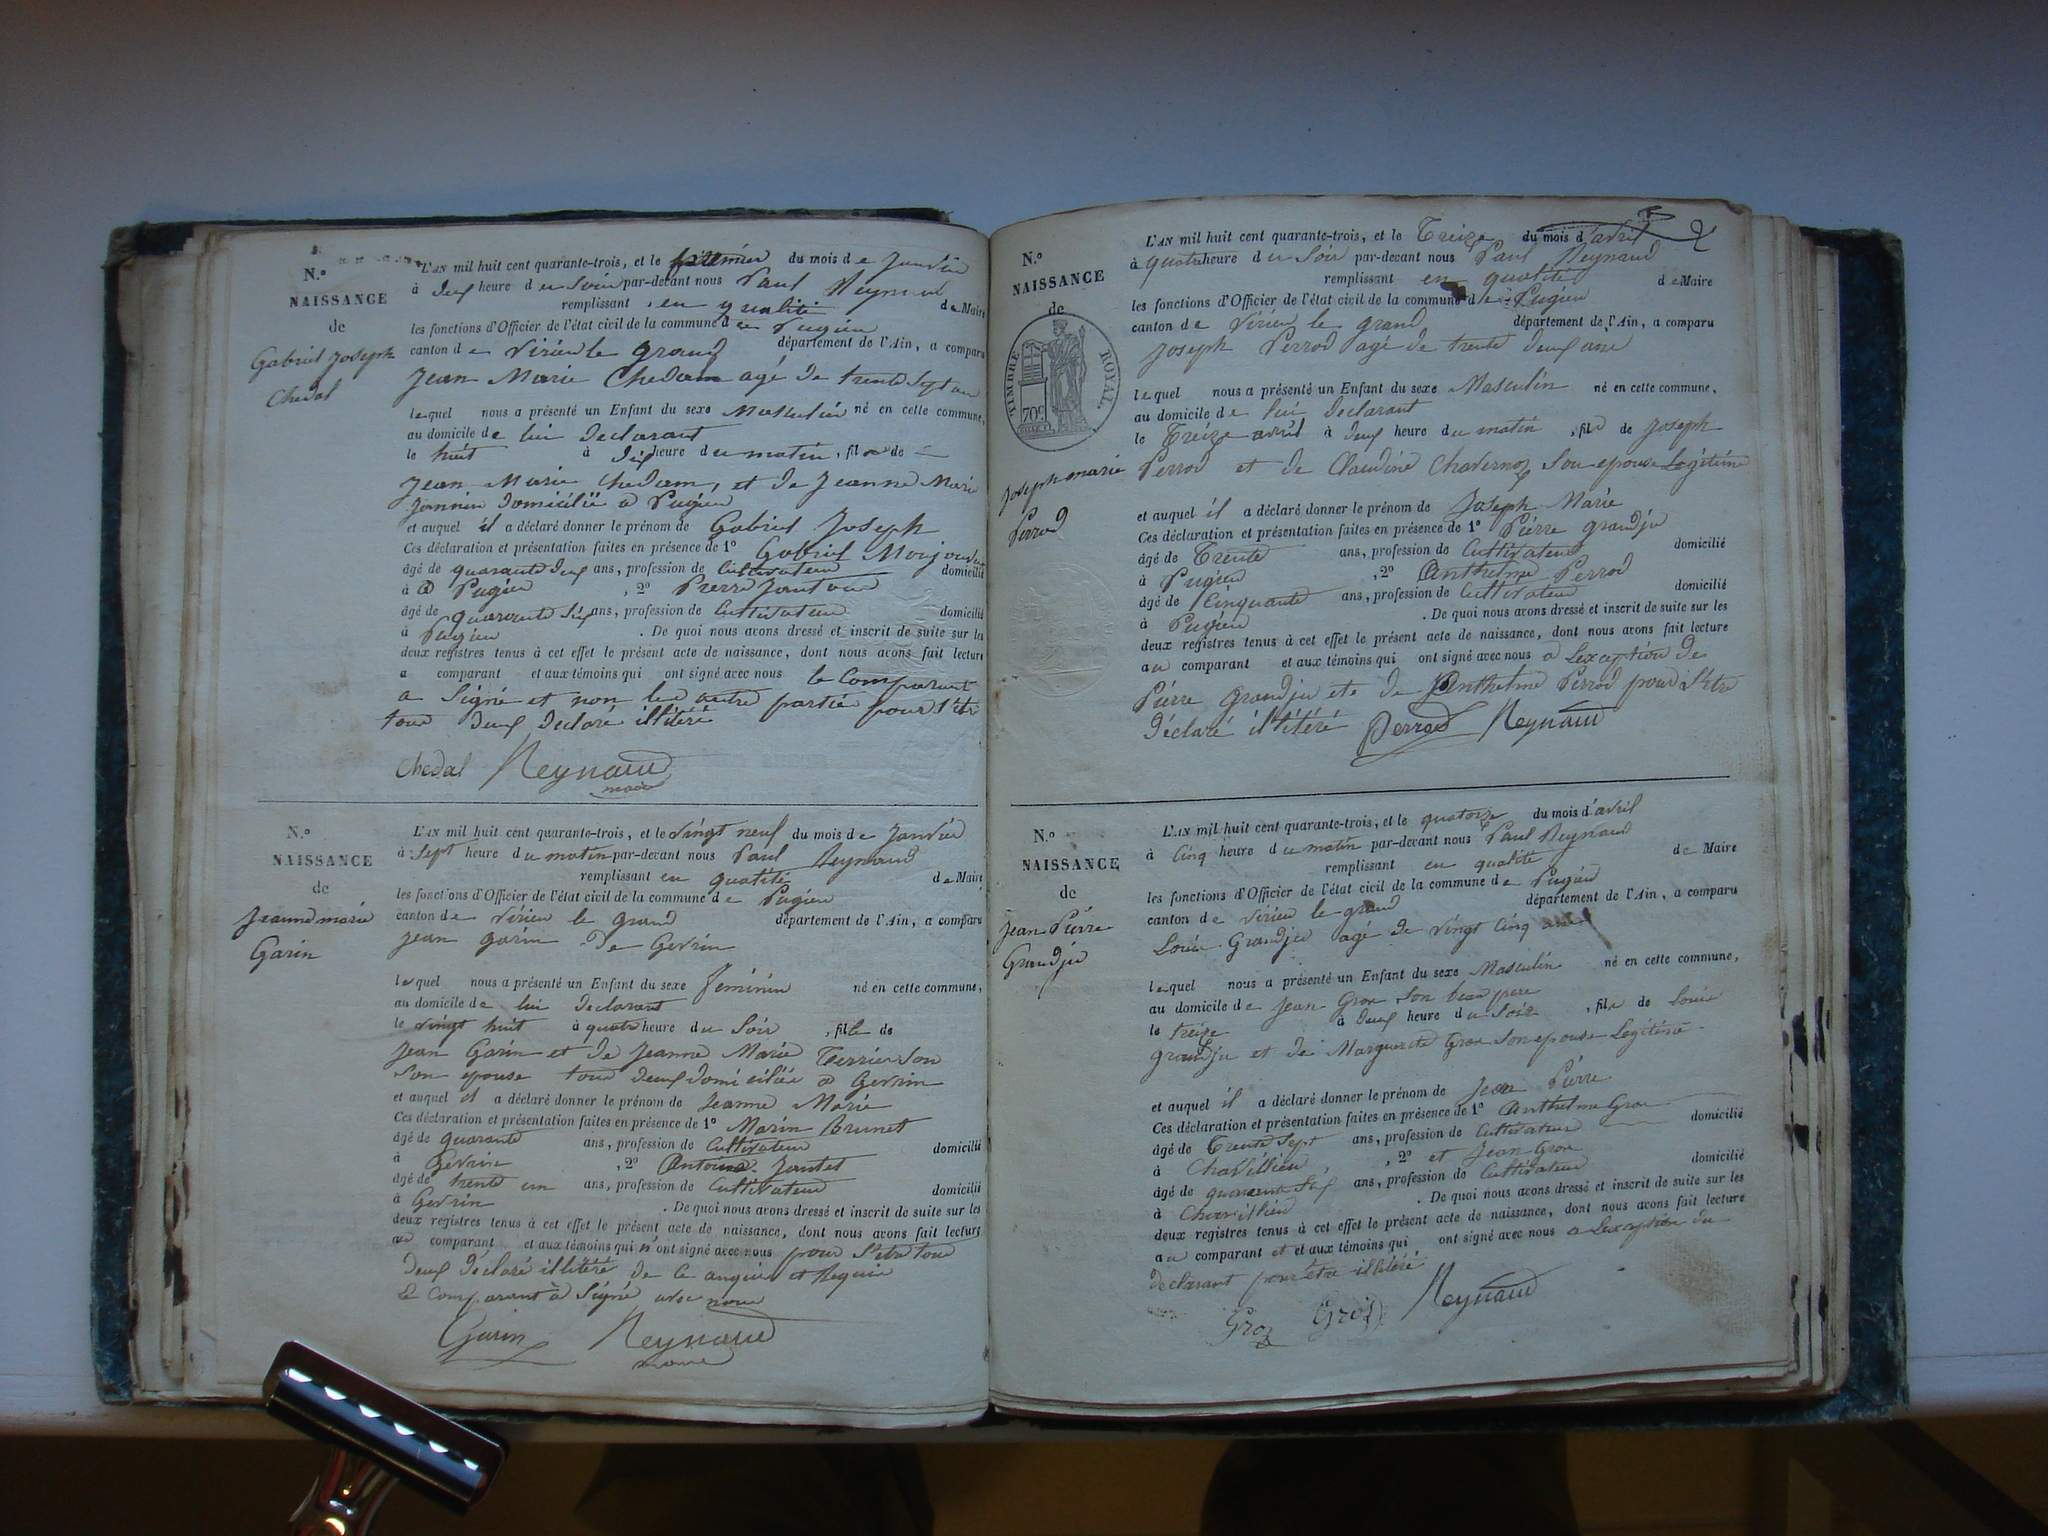 N.º
NAISSANCE
de
Gabriel Joseph
Chedal
L'AN mil huit cent quarante-trois, et le premier du mois de Janvier
à deux heure du Soir par-devant nous Paul Reynaud
remplissant en qualité de Maire
les fonctions d'Officier de l'état civil de la commune de Pugieu
canton de Virieu le grand département de l'Ain, a comparu
Jean Marie Chedam agé de trente Sept an
lequel nous a présenté un Enfant du sexe Masculin né en cette commune,
au domicile de lui declarant
le huit à dix heure du matin, fils de
Jean Marie Chedam, et de Jeanne Marie
Jannin domicilié a Pugieu
et auquel il a déclaré donner le prénom de Gabriel Joseph
Ces déclaration et présentation faites en présence de 1º Gabriel
âgé de quarante deux ans, profession de Cultivateur domicilié
à Pugieu, 2º Pierre
âgé de quarante Six ans, profession de Cultivateur domicilié
à Pugieu. De quoi nous avons dressé et inscrit de suite sur les
deux registres tenus à cet effet le présent acte de naissance, dont nous avons fait lecture
a comparant et aux témoins qui ont signé avec nous le Comparant
a Signé et non les autre partie pour s'etre
tous deux declaré illitéré
Chedal Reynaud
maire
N.º
NAISSANCE
de
Jeanne marie
Garin
L'AN mil huit cent quarante-trois, et le vingt neuf du mois de Janvier
à Sept heure du matin par-devant nous Paul Reynaud
remplissant en qualité de Maire
les fonctions d'Officier de l'état civil de la commune de Pugieu
canton de Virieu le grand département de l'Ain, a comparu
Jean garin de Gevrin
lequel nous a présenté un Enfant du sexe féminin né en cette commune,
au domicile de lui declarant
le vingt huit à quatre heure du Soir, fille de
Jean Garin et de Jeanne Marie Terrier Son
Son epouse tous deux domiciliée a Gevrin
et auquel il a déclaré donner le prénom de Jeanne Marie
Ces déclaration et présentation faites en présence de 1º Marin Brunet
âgé de quarante ans, profession de Cultivateur domicilié
à Gevrin, 2º Antoine Jantet
âgé de trente un ans, profession de Cultivateur domicilié
à Gevrin. De quoi nous avons dressé et inscrit de suite sur les
deux registres tenus à cet effet le présent acte de naissance, dont nous avons fait lecture
au comparant et aux témoins qui n'ont signé avec nous pour s'etre tous
deux déclaré illitéré de ce anquis et Requis
Le comparant à Signé avec nous
Garin Reynaud
maire
2
N.º
NAISSANCE
de
TIMBRE ROYAL
70c
Joseph marie
Perrod
L'AN mil huit cent quarante-trois, et le Treize du mois d'avril
à quatre heure du Soir par-devant nous Paul Reynaud
remplissant en qualité de Maire
les fonctions d'Officier de l'état civil de la commune de Pugieu
canton de Virieu le grand département de l'Ain, a comparu
Joseph Perrod agé de trente deux ans
lequel nous a présenté un Enfant du sexe Masculin né en cette commune,
au domicile de lui declarant
le Treize avril à deux heure du matin, fils de Joseph
Perrod et de Claudine Chavernoz Son epouse Legitime
et auquel il a déclaré donner le prénom de Joseph Marie
Ces déclaration et présentation faites en présence de 1º Pierre grandju
âgé de Trente ans, profession de Cultivateur domicilié
à Pugieu, 2º Anthelme Perrod
âgé de Cinquante ans, profession de Cultivateur domicilié
à Pugieu. De quoi nous avons dressé et inscrit de suite sur les
deux registres tenus à cet effet le présent acte de naissance, dont nous avons fait lecture
au comparant et aux témoins qui ont signé avec nous a Lexception de
Pierre Grandju ete de Janthelme Perrod pour s'etre
déclaré illitéré Perrod Reynaud
N.º
NAISSANCE
de
Jean Pierre
Grandju
L'AN mil huit cent quarante-trois, et le quatorze du mois d'avril
à Cinq heure du matin par-devant nous Paul Reynaud
remplissant en qualité de Maire
les fonctions d'Officier de l'état civil de la commune de Pugieu
canton de Virieu le grand département de l'Ain, a comparu
Louis Grandju agé de vingt Cinq ans
lequel nous a présenté un Enfant du sexe Masculin né en cette commune,
au domicile de Jean Gros Son beau pere
le treize à deux heure du Soir, fils de Louis
grandju et de Marguerite Gros Son epouse Legitime
et auquel il a déclaré donner le prénom de Jean Pierre
Ces déclaration et présentation faites en présence de 1º Anthelme Gros
âgé de Trente Sept ans, profession de Cultivateur domicilié
à Chavillieu, 2º et Jean Gros
âgé de quarante Six ans, profession de Cultivateur domicilié
à Chavillieu. De quoi nous avons dressé et inscrit de suite sur les
deux registres tenus à cet effet le présent acte de naissance, dont nous avons fait lecture
au comparant et et aux témoins qui ont signé avec nous a Lexception du
declarant pour être illitéré
Groz Groz Reynaud